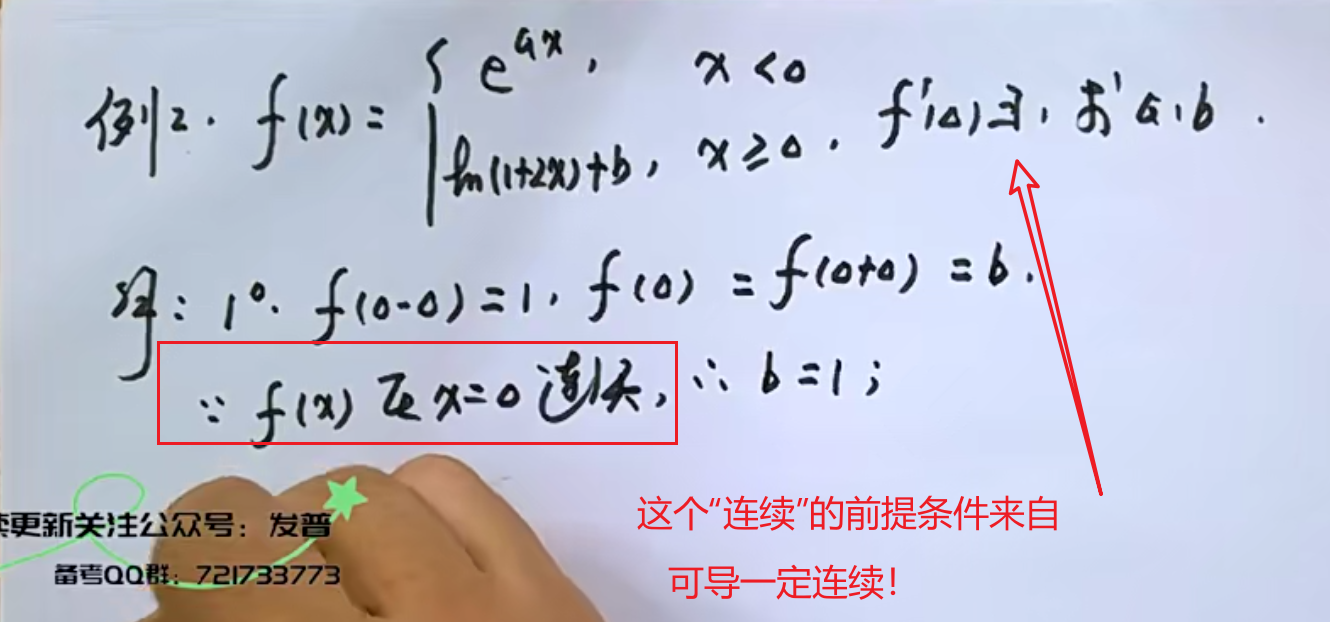 例2. f(x)= { e^{ax}, x<0
ln(1+2x)+b, x≥0. f'(0)∃, 求 a,b.
解: 1°. f(0-0)=1, f(0)=f(0+0)=b.
∵ f(x) 在 x=0 连续, ∴ b=1;
这个“连续”的前提条件来自
可导一定连续!
续更新关注公众号: 发普
备考QQ群: 721733773